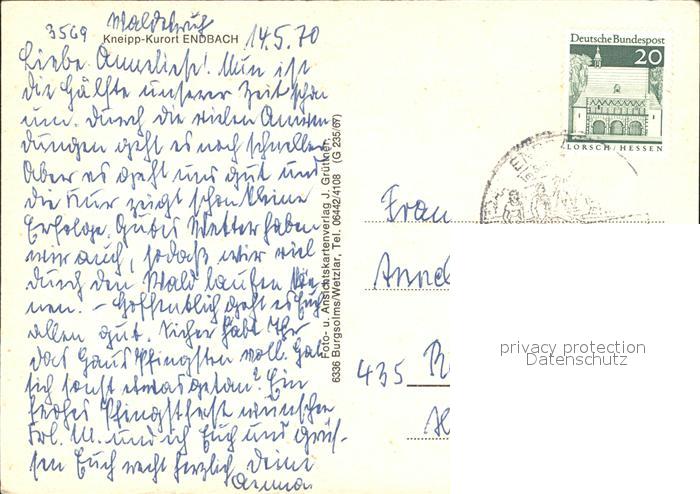 3569 Waldesruh
Kneipp-Kurort ENDBACH 14.5.70
Liebe Anneliese! Nun ist
die Hälfte unserer Zeit schon
um. Durch die vielen Anwen-
dungen geht es noch schneller.
Aber es geht uns gut und
die Kur zeigt schon kleine
Erfolge. Gutes Wetter haben
wir auch, sodaß wir viel
durch den Wald laufen kön-
nen. – Hoffentlich geht es Euch
allen gut. Sicher habt Ihr
das Haus Pfingsten voll. Hat
sich sonst etwas getan? Ein
frohes Pfingstfest wünschen
Frl. M. und ich Euch und grüs-
sen Euch recht herzlich, Deine
Foto- u. Ansichtskartenverlag J. Grüttner,
6336 Burgsolms/Wetzlar, Tel. 06442/4108 (G 235/67)
Deutsche Bundespost
20
LORSCH / HESSEN
Frau
435
privacy protection
Datenschutz